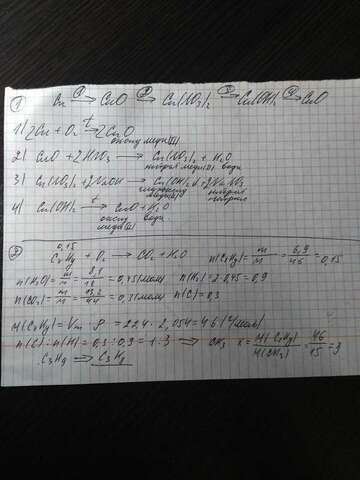 ① Cu →① CuO →② Cu(NO₃)₂ →③ Cu(OH)₂ →④ CuO
1) 2Cu + O₂ →t 2CuO
оксид меди (II)
2) CuO + 2HNO₃ → Cu(NO₃)₂ + H₂O
нитрат меди (II) вода
3) Cu(NO₃)₂ + 2NaOH → Cu(OH)₂↓ + 2NaNO₃
гидроксид меди (II) нитрат натрия
4) Cu(OH)₂ →t CuO + H₂O
оксид меди (II) вода
② 0,15
CxHy + O₂ → CO₂ + H₂O n(CxHy) = m/M = 6,9/46 = 0,15
n(H₂O) = m/M = 8,1/18 = 0,45 (моль) n(H) = 2·0,45 = 0,9
n(CO₂) = m/M = 13,2/44 = 0,3 (моль) n(C) = 0,3
M(CxHy) = Vm · ρ = 22,4 · 2,054 = 46 (г/моль)
n(C) : n(H) = 0,3 : 0,9 = 1 : 3 ⟹ CH₃ x = M(CxHy)/M(CH₃) = 46/15 = 3
C₃H₉ ⟹